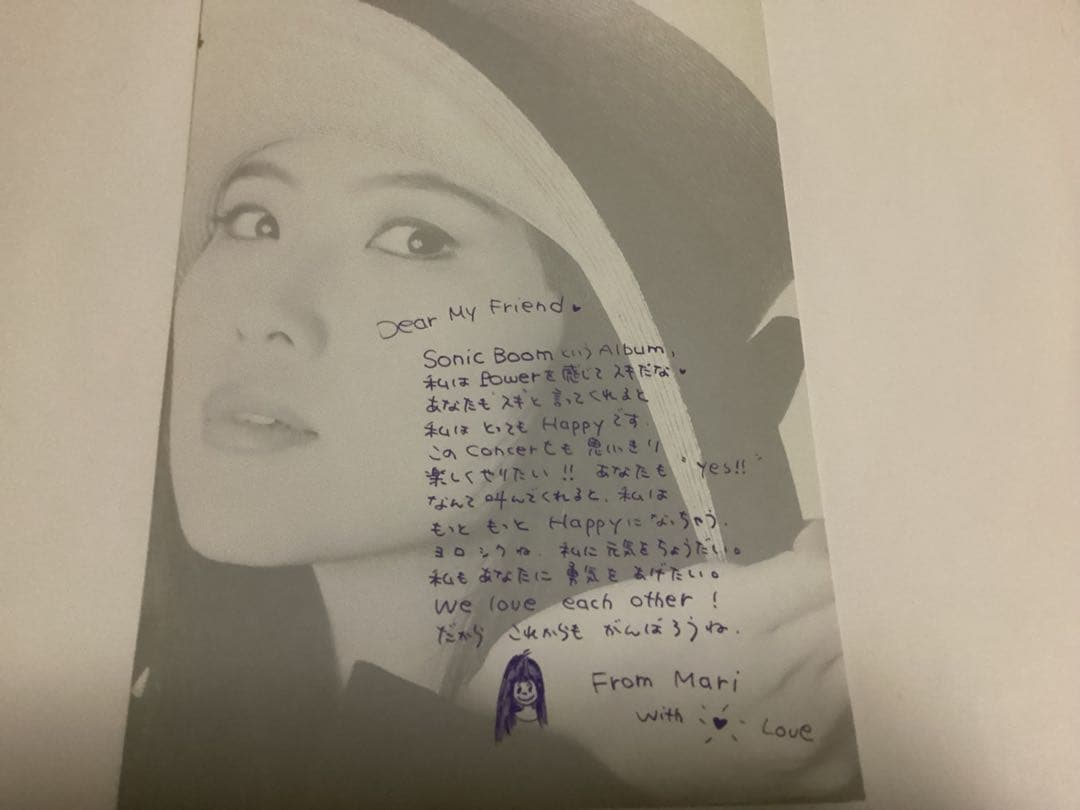 Dear My Friend♥
Sonic Boom という Album,
私は Powerを感じて スキだな♥
あなたも"スキ"と言ってくれると
私は とっても Happyです.
この Concertも 思いきり
楽しくやりたい!! あなたも "Yes!!"
なんて 叫んでくれると、私は
もっと もっと Happyになっちゃう.
ヨロシクね. 私に 元気をちょうだい。
私も あなたに 勇気を あげたい。
We love each other !
だから これからも がんばろうね.
From Mari
with ♥ Love